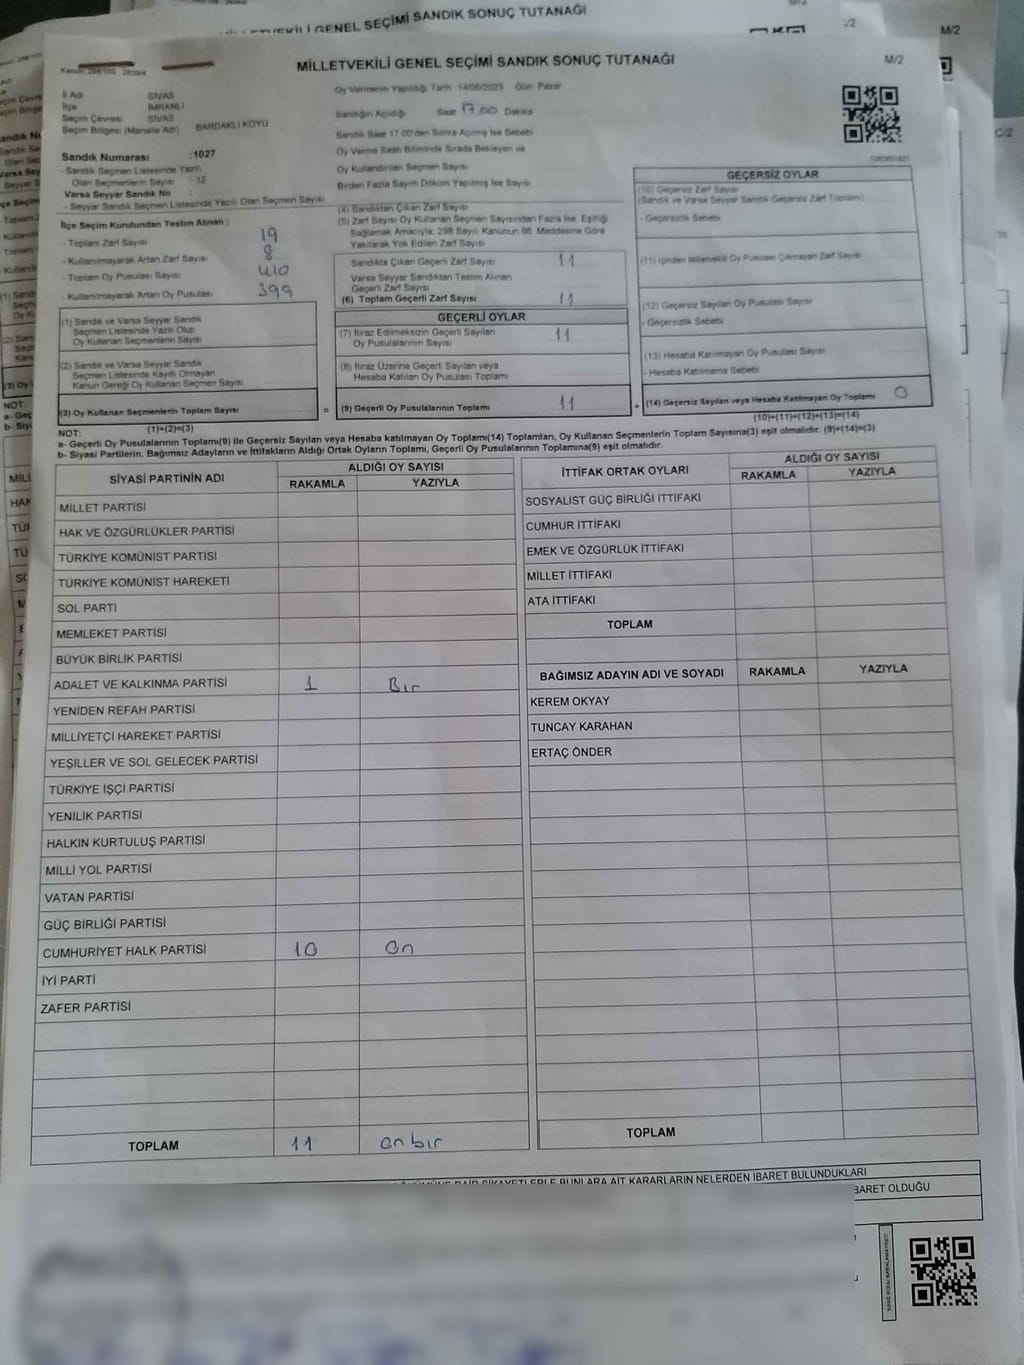 MİLLETVEKİLİ GENEL SEÇİMİ SANDIK SONUÇ TUTANAĞI
M/2
MİLLETVEKİLİ GENEL SEÇİMİ SANDIK SONUÇ TUTANAĞI
M/2
İl Adı SİVAS
İlçe İMRANLI
Seçim Çevresi SİVAS
Seçim Bölgesi (Mahalle Adı) BARDAKLI KÖYÜ
Sandık Numarası : 1027
- Sandık Seçmen Listesinde Yazılı
Olan Seçmenlerin Sayısı : 12
Varsa Seyyar Sandık No :
- Seyyar Sandık Seçmen Listesinde Yazılı Olan Seçmen Sayısı
İlçe Seçim Kurulundan Teslim Alınan :
- Toplam Zarf Sayısı 19
- Kullanılmayarak Artan Zarf Sayısı 8
- Toplam Oy Pusulası Sayısı 410
- Kullanılmayarak Artan Oy Pusulası 399
(1) Sandık ve Varsa Seyyar Sandık
Seçmen Listesinde Yazılı Olup
Oy Kullanan Seçmenlerin Sayısı
(2) Sandık ve Varsa Seyyar Sandık
Seçmen Listesinde Kayıtlı Olmayan
Kanun Gereği Oy Kullanan Seçmen Sayısı
(3) Oy Kullanan Seçmenlerin Toplam Sayısı
(1)+(2)=(3)
Oy Vermenin Yapıldığı Tarih 14/05/2023 Gün: Pazar
Sandığın Açıldığı Saat 17.00 Dakika
Sandık Saat 17:00'den Sonra Açılmış İse Sebebi
Oy Verme Saati Bitiminde Sırada Bekleyen ve
Oy Kullandırılan Seçmen Sayısı
Birden Fazla Sayım Döküm Yapılmış İse Sayısı
(4) Sandıktan Çıkan Zarf Sayısı
(5) Zarf Sayısı Oy Kullanan Seçmen Sayısından Fazla İse, Eşitliği
Sağlamak Amacıyla, 298 Sayılı Kanunun 98. Maddesine Göre
Yakılarak Yok Edilen Zarf Sayısı
Sandıkta Çıkan Geçerli Zarf Sayısı 11
Varsa Seyyar Sandıktan Teslim Alınan
Geçerli Zarf Sayısı
(6) Toplam Geçerli Zarf Sayısı 11
GEÇERLİ OYLAR
(7) İtiraz Edilmeksizin Geçerli Sayılan
Oy Pusulalarının Sayısı 11
(8) İtiraz Üzerine Geçerli Sayılan veya
Hesaba Katılan Oy Pusulası Toplamı
= (9) Geçerli Oy Pusulalarının Toplamı 11
GEÇERSİZ OYLAR
(10) Geçersiz Zarf Sayısı
(Sandık ve Varsa Seyyar Sandık Geçersiz Zarf Toplamı)
- Geçersizlik Sebebi
(11) İçinden Milletvekili Oy Pusulası Çıkmayan Zarf Sayısı
(12) Geçersiz Sayılan Oy Pusulası Sayısı
- Geçersizlik Sebebi
(13) Hesaba Katılmayan Oy Pusulası Sayısı
- Hesaba Katılmama Sebebi
+ (14) Geçersiz Sayılan veya Hesaba Katılmayan Oy Toplamı 0
(10)+(11)+(12)+(13)=(14)
NOT:
a- Geçerli Oy Pusulalarının Toplamı(9) ile Geçersiz Sayılan veya Hesaba katılmayan Oy Toplamı(14) Toplamları, Oy Kullanan Seçmenlerin Toplam Sayısına(3) eşit olmalıdır. (9)+(14)=(3)
b- Siyasi Partilerin, Bağımsız Adayların ve İttifakların Aldığı Ortak Oyların Toplamı, Geçerli Oy Pusulalarının Toplamına(9) eşit olmalıdır.
SİYASİ PARTİNİN ADI ALDIĞI OY SAYISI
RAKAMLA YAZIYLA
MİLLET PARTİSİ
HAK VE ÖZGÜRLÜKLER PARTİSİ
TÜRKİYE KOMÜNİST PARTİSİ
TÜRKİYE KOMÜNİST HAREKETİ
SOL PARTİ
MEMLEKET PARTİSİ
BÜYÜK BİRLİK PARTİSİ
ADALET VE KALKINMA PARTİSİ 1 Bir
YENİDEN REFAH PARTİSİ
MİLLİYETÇİ HAREKET PARTİSİ
YEŞİLLER VE SOL GELECEK PARTİSİ
TÜRKİYE İŞÇİ PARTİSİ
YENİLİK PARTİSİ
HALKIN KURTULUŞ PARTİSİ
MİLLİ YOL PARTİSİ
VATAN PARTİSİ
GÜÇ BİRLİĞİ PARTİSİ
CUMHURİYET HALK PARTİSİ 10 On
İYİ PARTİ
ZAFER PARTİSİ
TOPLAM 11 On bir
İTTİFAK ORTAK OYLARI ALDIĞI OY SAYISI
RAKAMLA YAZIYLA
SOSYALİST GÜÇ BİRLİĞİ İTTİFAKI
CUMHUR İTTİFAKI
EMEK VE ÖZGÜRLÜK İTTİFAKI
MİLLET İTTİFAKI
ATA İTTİFAKI
TOPLAM
BAĞIMSIZ ADAYIN ADI VE SOYADI RAKAMLA YAZIYLA
KEREM OKYAY
TUNCAY KARAHAN
ERTAÇ ÖNDER
TOPLAM
ŞİKAYETLERLE BUNLARA AİT KARARLARIN NELERDEN İBARET BULUNDUKLARI
İBARET OLDUĞU